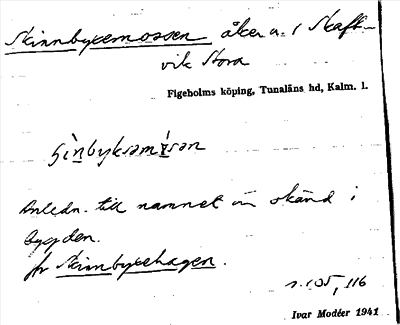 Skinnbyxemossen åker u. / Skaft-
vik Stora
Figeholms köping, Tunaläns hd, Kalm. l.
Anledn. till namnet är okänd i
bygden.
Jfr Skinnbyxehagen.
s. 105, 116
Ivar Modéer 1941